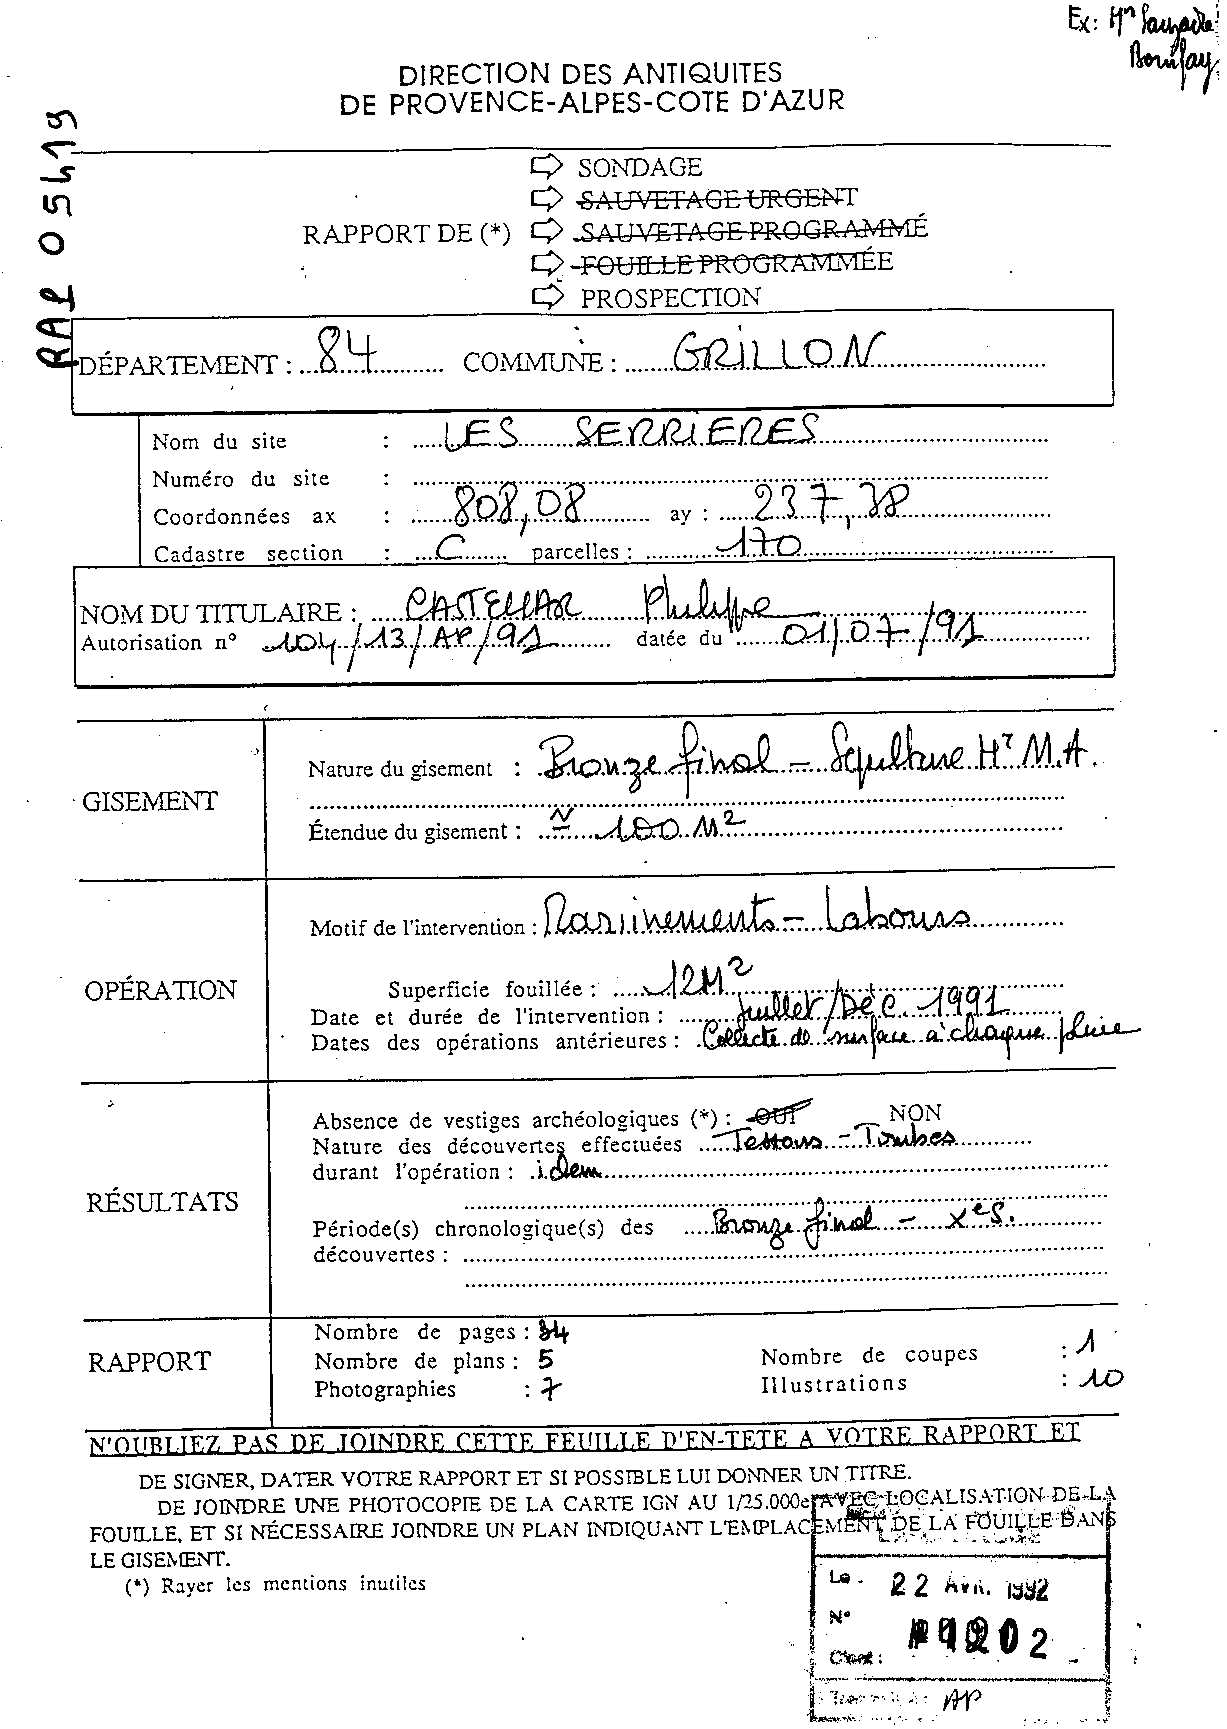 Ex: Mr Sauzade
Bonifay
DIRECTION DES ANTIQUITES
DE PROVENCE-ALPES-COTE D'AZUR
RAP 05419
SONDAGE
SAUVETAGE URGENT
RAPPORT DE (*)
SAUVETAGE PROGRAMMÉ
FOUILLE PROGRAMMÉE
PROSPECTION
DÉPARTEMENT : 84 COMMUNE : GRILLON
Nom du site : LES SERRIERES
Numéro du site :
Coordonnées ax : 808,08 ay : 237,78
Cadastre section : C parcelles : 170
NOM DU TITULAIRE : CASTELLAR Philippe
Autorisation n° 104/13/AP/91 datée du 01/07/91
GISEMENT
Nature du gisement : Bronze final - Sépulture Ht M.A.
Étendue du gisement : ≃ 100 M²
OPÉRATION
Motif de l'intervention : - Labours
Superficie fouillée : 12M²
Date et durée de l'intervention : Juillet/Déc. 1991
Dates des opérations antérieures : Collecte de surface à chaque pluie
RÉSULTATS
Absence de vestiges archéologiques (*) : OUI NON
Nature des découvertes effectuées Tessons - Tombes
durant l'opération : idem
Période(s) chronologique(s) des Bronze final - Xes.
découvertes :
RAPPORT
Nombre de pages : 34
Nombre de plans : 5 Nombre de coupes : 1
Photographies : 7 Illustrations : 10
N'OUBLIEZ PAS DE JOINDRE CETTE FEUILLE D'EN-TETE A VOTRE RAPPORT ET
DE SIGNER, DATER VOTRE RAPPORT ET SI POSSIBLE LUI DONNER UN TITRE.
DE JOINDRE UNE PHOTOCOPIE DE LA CARTE IGN AU 1/25.000e AVEC LOCALISATION DE LA
FOUILLE, ET SI NÉCESSAIRE JOINDRE UN PLAN INDIQUANT L'EMPLACEMENT DE LA FOUILLE DANS
LE GISEMENT.
(*) Rayer les mentions inutiles
Le 22 AVR. 1992
N°
Clast :
AP